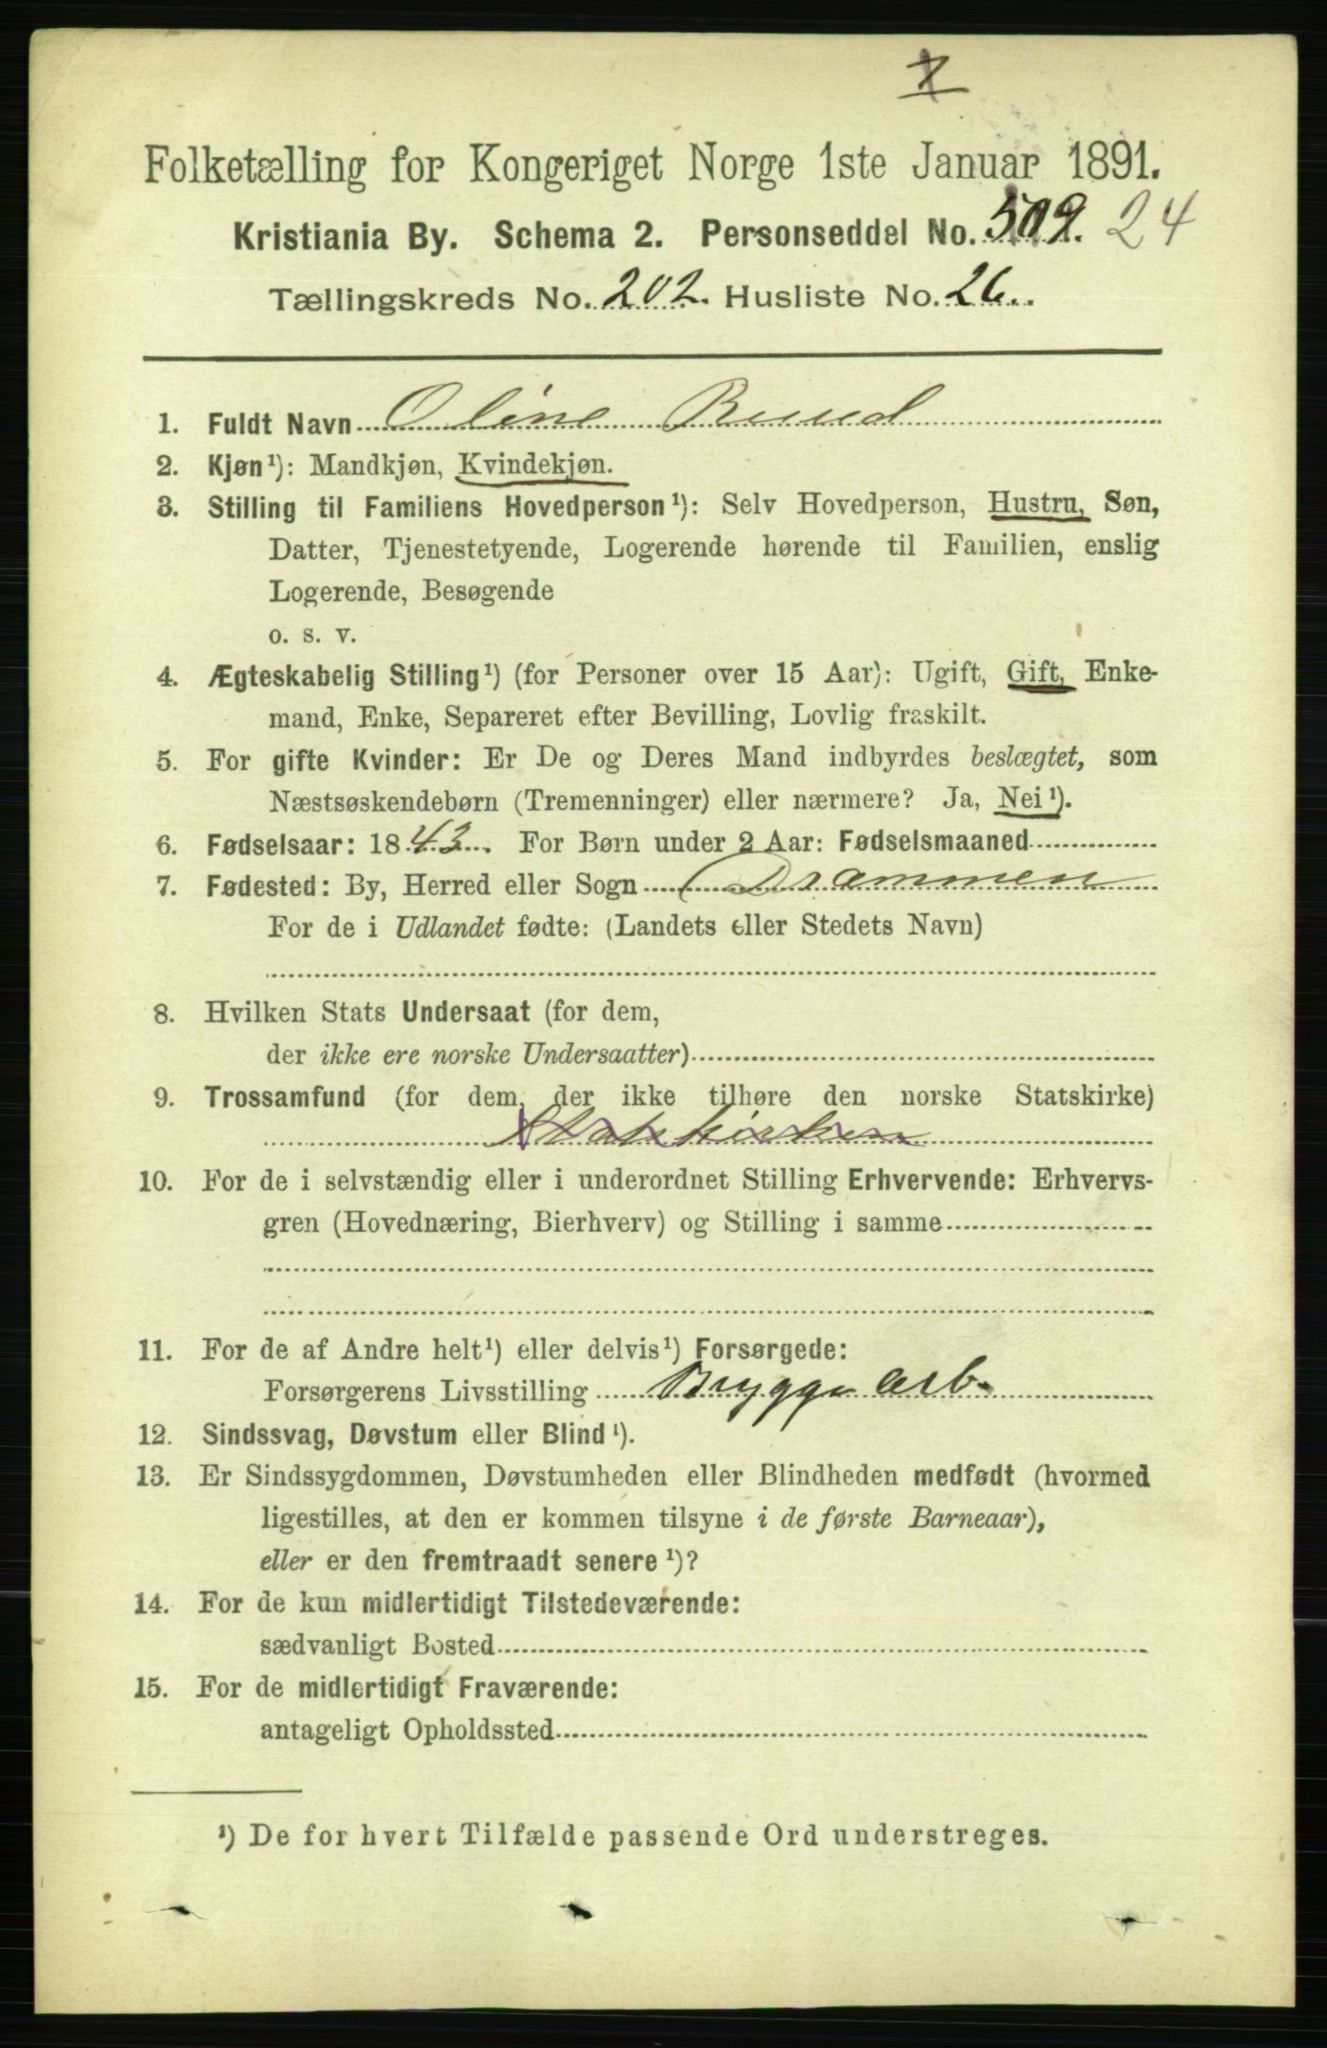 Folketælling for Kongeriget Norge 1ste Januar 1891.
Kristiania By. Schema 2. Personseddel No. 509. 24
Tællingskreds No. 202. Husliste No. 26.
1. Fuldt Navn Oline Ruud
2. Kjøn¹): Mandkjøn, Kvindekjøn.
3. Stilling til Familiens Hovedperson¹): Selv Hovedperson, Hustru, Søn,
Datter, Tjenestetyende, Logerende hørende til Familien, enslig
Logerende, Besøgende
o. s. v.
4. Ægteskabelig Stilling¹) (for Personer over 15 Aar): Ugift, Gift, Enke-
mand, Enke, Separeret efter Bevilling, Lovlig fraskilt.
5. For gifte Kvinder: Er De og Deres Mand indbyrdes beslægtet, som
Næstsøskendebørn (Tremenninger) eller nærmere? Ja, Nei¹).
6. Fødselsaar: 1843. For Børn under 2 Aar: Fødselsmaaned
7. Fødested: By, Herred eller Sogn Drammen
For de i Udlandet fødte: (Landets eller Stedets Navn)
8. Hvilken Stats Undersaat (for dem,
der ikke ere norske Undersaatter)
9. Trossamfund (for dem, der ikke tilhøre den norske Statskirke)
Statskirken
10. For de i selvstændig eller i underordnet Stilling Erhvervende: Erhvervs-
gren (Hovednæring, Bierhverv) og Stilling i samme
11. For de af Andre helt¹) eller delvis¹) Forsørgede:
Forsørgerens Livsstilling Brygge Arb.
12. Sindssvag, Døvstum eller Blind¹).
13. Er Sindssygdommen, Døvstumheden eller Blindheden medfødt (hvormed
ligestilles, at den er kommen tilsyne i de første Barneaar),
eller er den fremtraadt senere¹)?
14. For de kun midlertidigt Tilstedeværende:
sædvanligt Bosted
15. For de midlertidigt Fraværende:
antageligt Opholdssted
¹) De for hvert Tilfælde passende Ord understreges.